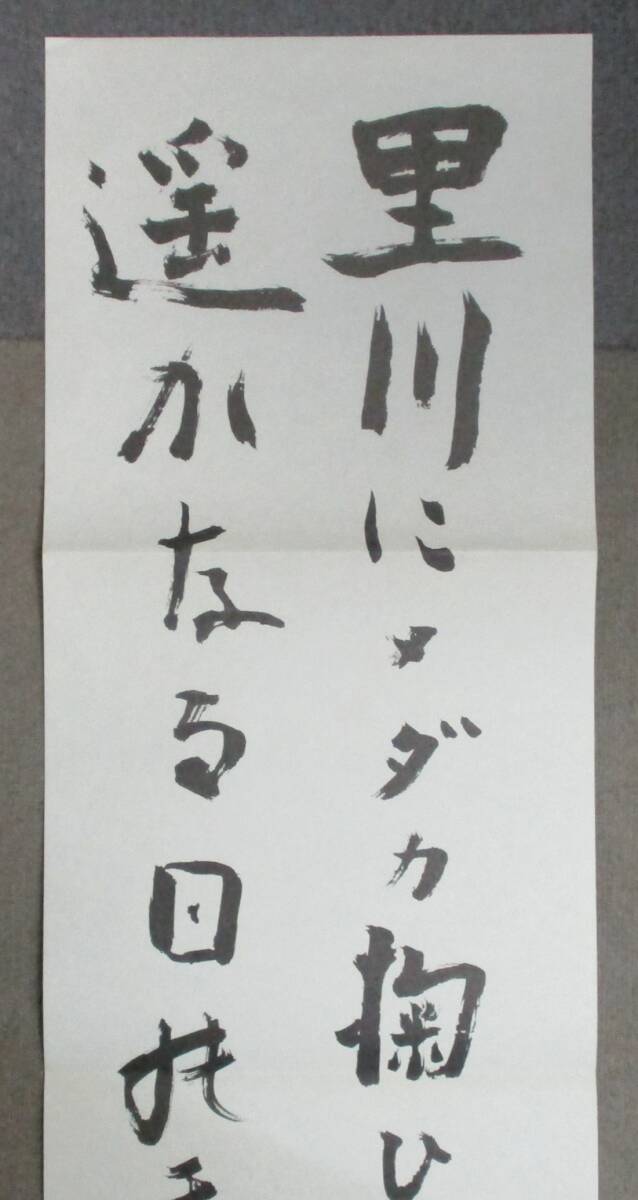 里川にメダカ掬ひ
遥かなる日